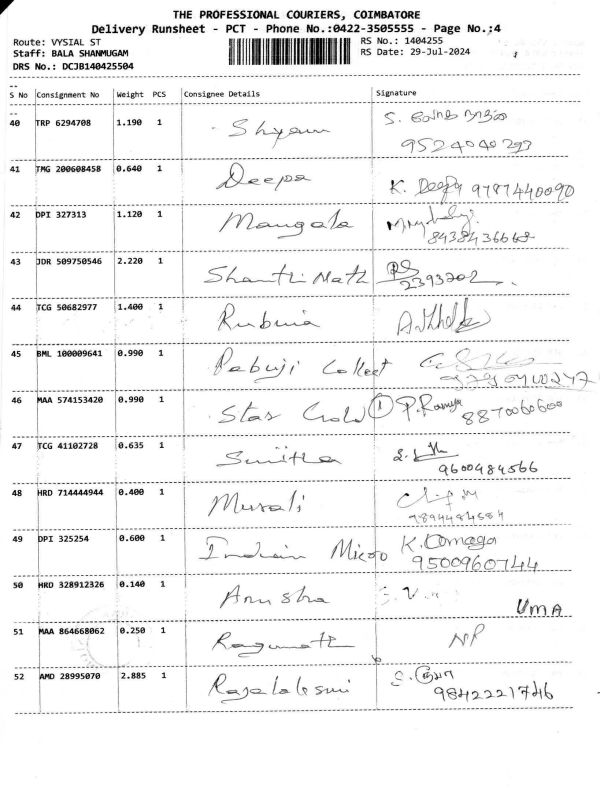 THE PROFESSIONAL COURIERS, COIMBATORE
Delivery Runsheet - PCT - Phone No.:0422-3505555 - Page No.;4
Route: VYSIAL ST
RS No.: 1404255
Staff: BALA SHANMUGAM
RS Date: 29-Jul-2024
DRS No.: DCJB140425504
S No Consignment No Weight PCS Consignee Details Signature
40 TRP 6294708 1.190 1 Shyam S.
9524040293
41 TMG 200608458 0.640 1 Deepa K. Deepa 9787440090
42 DPI 327313 1.120 1 Mangala
8438436668
43 JDR 509750546 2.220 1 Shanthi Nath
2393202
44 TCG 50682977 1.400 1 Rubina
45 BML 100009641 0.990 1 Pabuji Collect
46 MAA 574153420 0.990 1 Star Gold ① P. Ramya
8870060600
47 TCG 41102728 0.635 1 Smitha
9600484566
48 HRD 714444944 0.400 1 Murali
9894484584
49 DPI 325254 0.600 1 Indian Micro K.
9500960744
50 HRD 328912326 0.140 1 Anusha
UMA
51 MAA 864668062 0.250 1 Ragunath NP
52 AMD 28995070 2.885 1 Rajalaksmi
9842221746